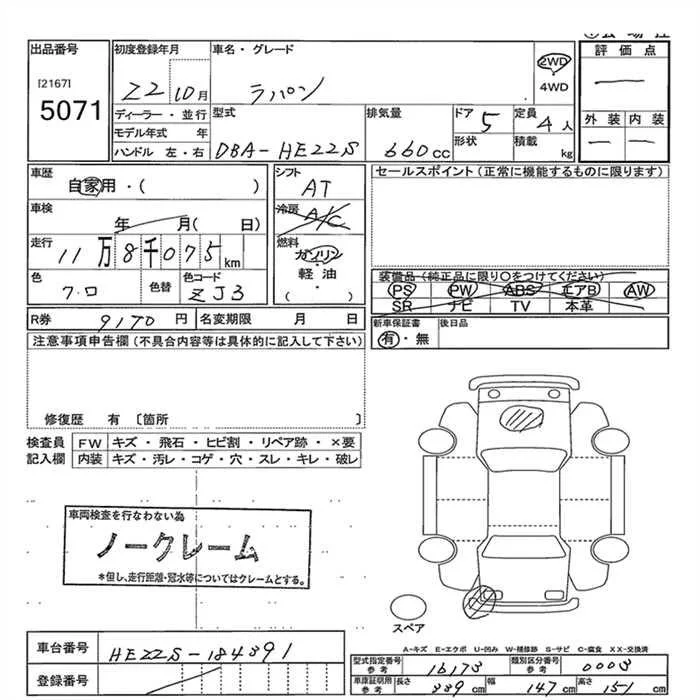 出品番号
[2167]
5071
初度登録年月
22 10月
車名・グレード
ラパン
2WD
4WD
評価点
—
外装 内装
— —
ディーラー・並行
モデル年式 年
ハンドル 左・右
型式
DBA-HE22S
排気量
660cc
ドア
5
形状
定員
4人
積載
kg
車歴
自家用・( )
シフト
AT
セールスポイント (正常に機能するものに限ります)
車検
年 月( 日)
冷房
A/C
走行
11万8千075km
燃料
ガソリン
・
軽油
( )
色
クロ
色替
色コード
ZJ3
装備品(純正品に限り○をつけてください)
PS PW ABS エアB AW
SR ナビ TV 本革
R券 9170円
名変期限 月 日
新車保証書
有・無
後日品
注意事項申告欄 (不具合内容等は具体的に記入して下さい)
修復歴 有 〔箇所 〕
検査員
記入欄
FW キズ・飛石・ヒビ割・リペア跡・×要
内装 キズ・汚レ・コゲ・穴・スレ・キレ・破レ
車両検査を行なわない為
ノークレーム
*但し、走行距離・冠水等についてはクレームとする。
スペア
A-キズ E-エクボ U-凹み W-補修跡 S-サビ C-腐食 XX-交換済
車台番号 HE22S-184391
登録番号
型式指定番号
参考
16173
類別区分番号
参考
0003
車庫証明用
参考
長さ 339cm
幅 147cm
高さ 151cm